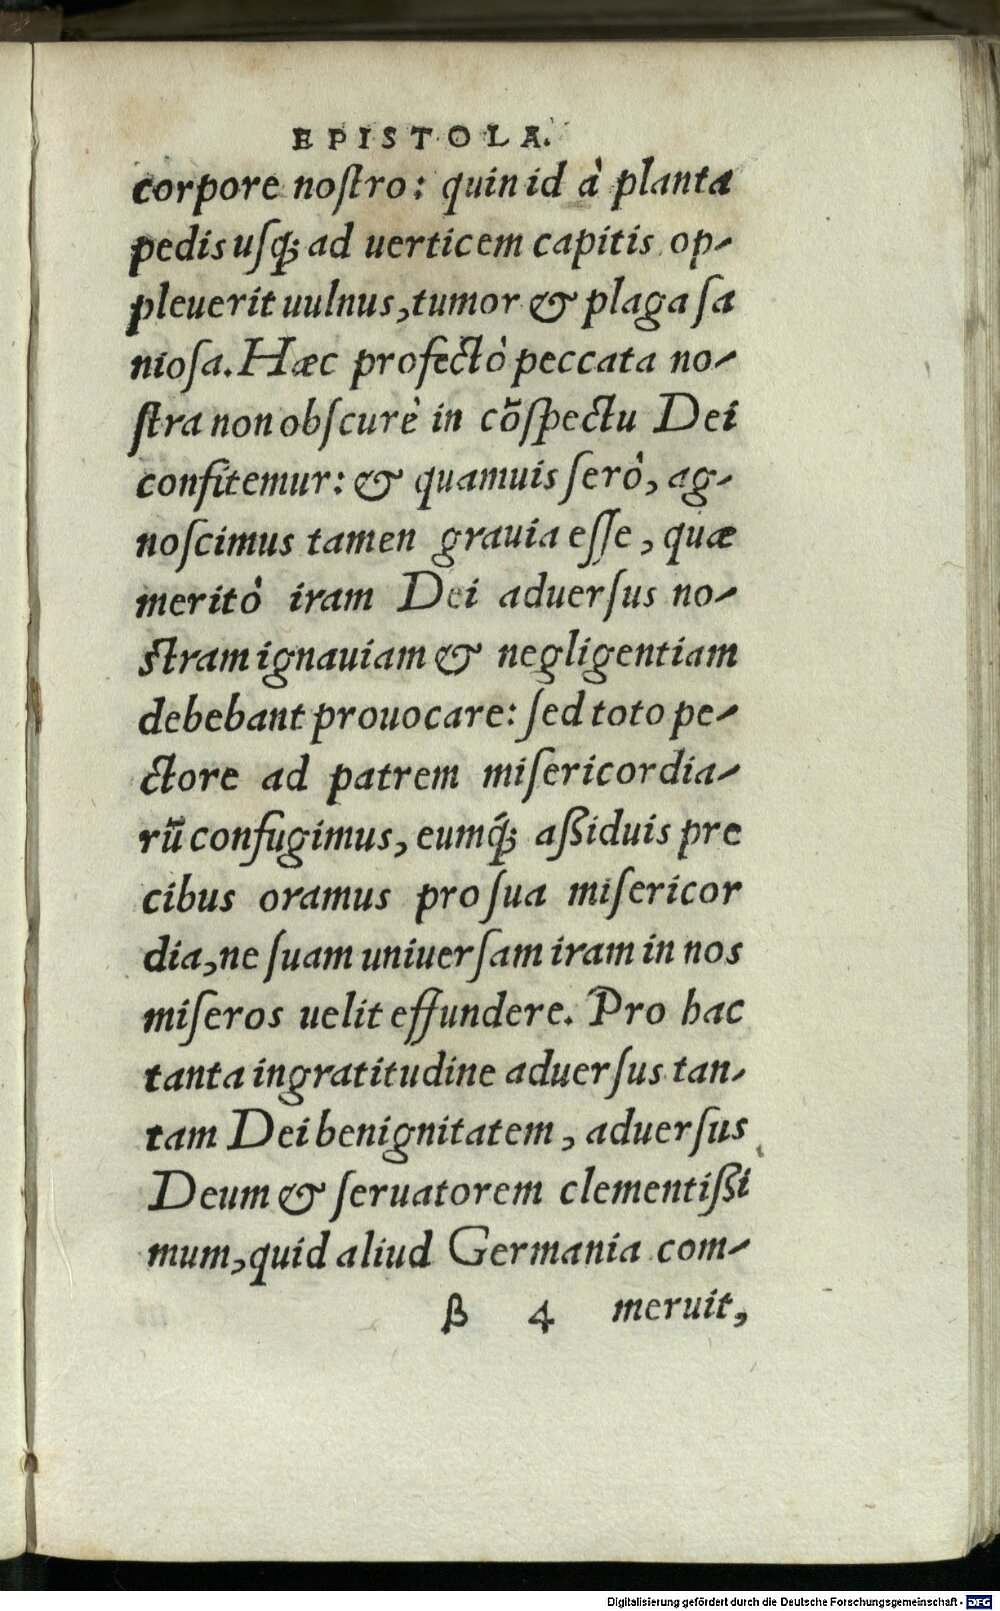 EPISTOLA.
corpore noſtro: quin id à planta
pedis uſq́; ad uerticem capitis op-
pleuerit uulnus, tumor & plaga ſa
nioſa. Hæc profectò peccata no-
ſtra non obſcurè in cõſpectu Dei
confitemur: & quamuis ſerò, ag-
noſcimus tamen grauia eſſe, quæ
meritò iram Dei aduerſus no-
ſtram ignauiam & negligentiam
debebant prouocare: ſed toto pe-
ctore ad patrem miſericordia-
rũ confugimus, eumq́; aßiduis pre
cibus oramus pro ſua miſericor
dia, ne ſuam uniuerſam iram in nos
miſeros uelit effundere. Pro hac
tanta ingratitudine aduerſus tan-
tam Dei benignitatem, aduerſus
Deum & ſeruatorem clementißi
mum, quid aliud Germania com-
β 4 meruit,
Digitalisierung gefördert durch die Deutsche Forschungsgemeinschaft - DFG